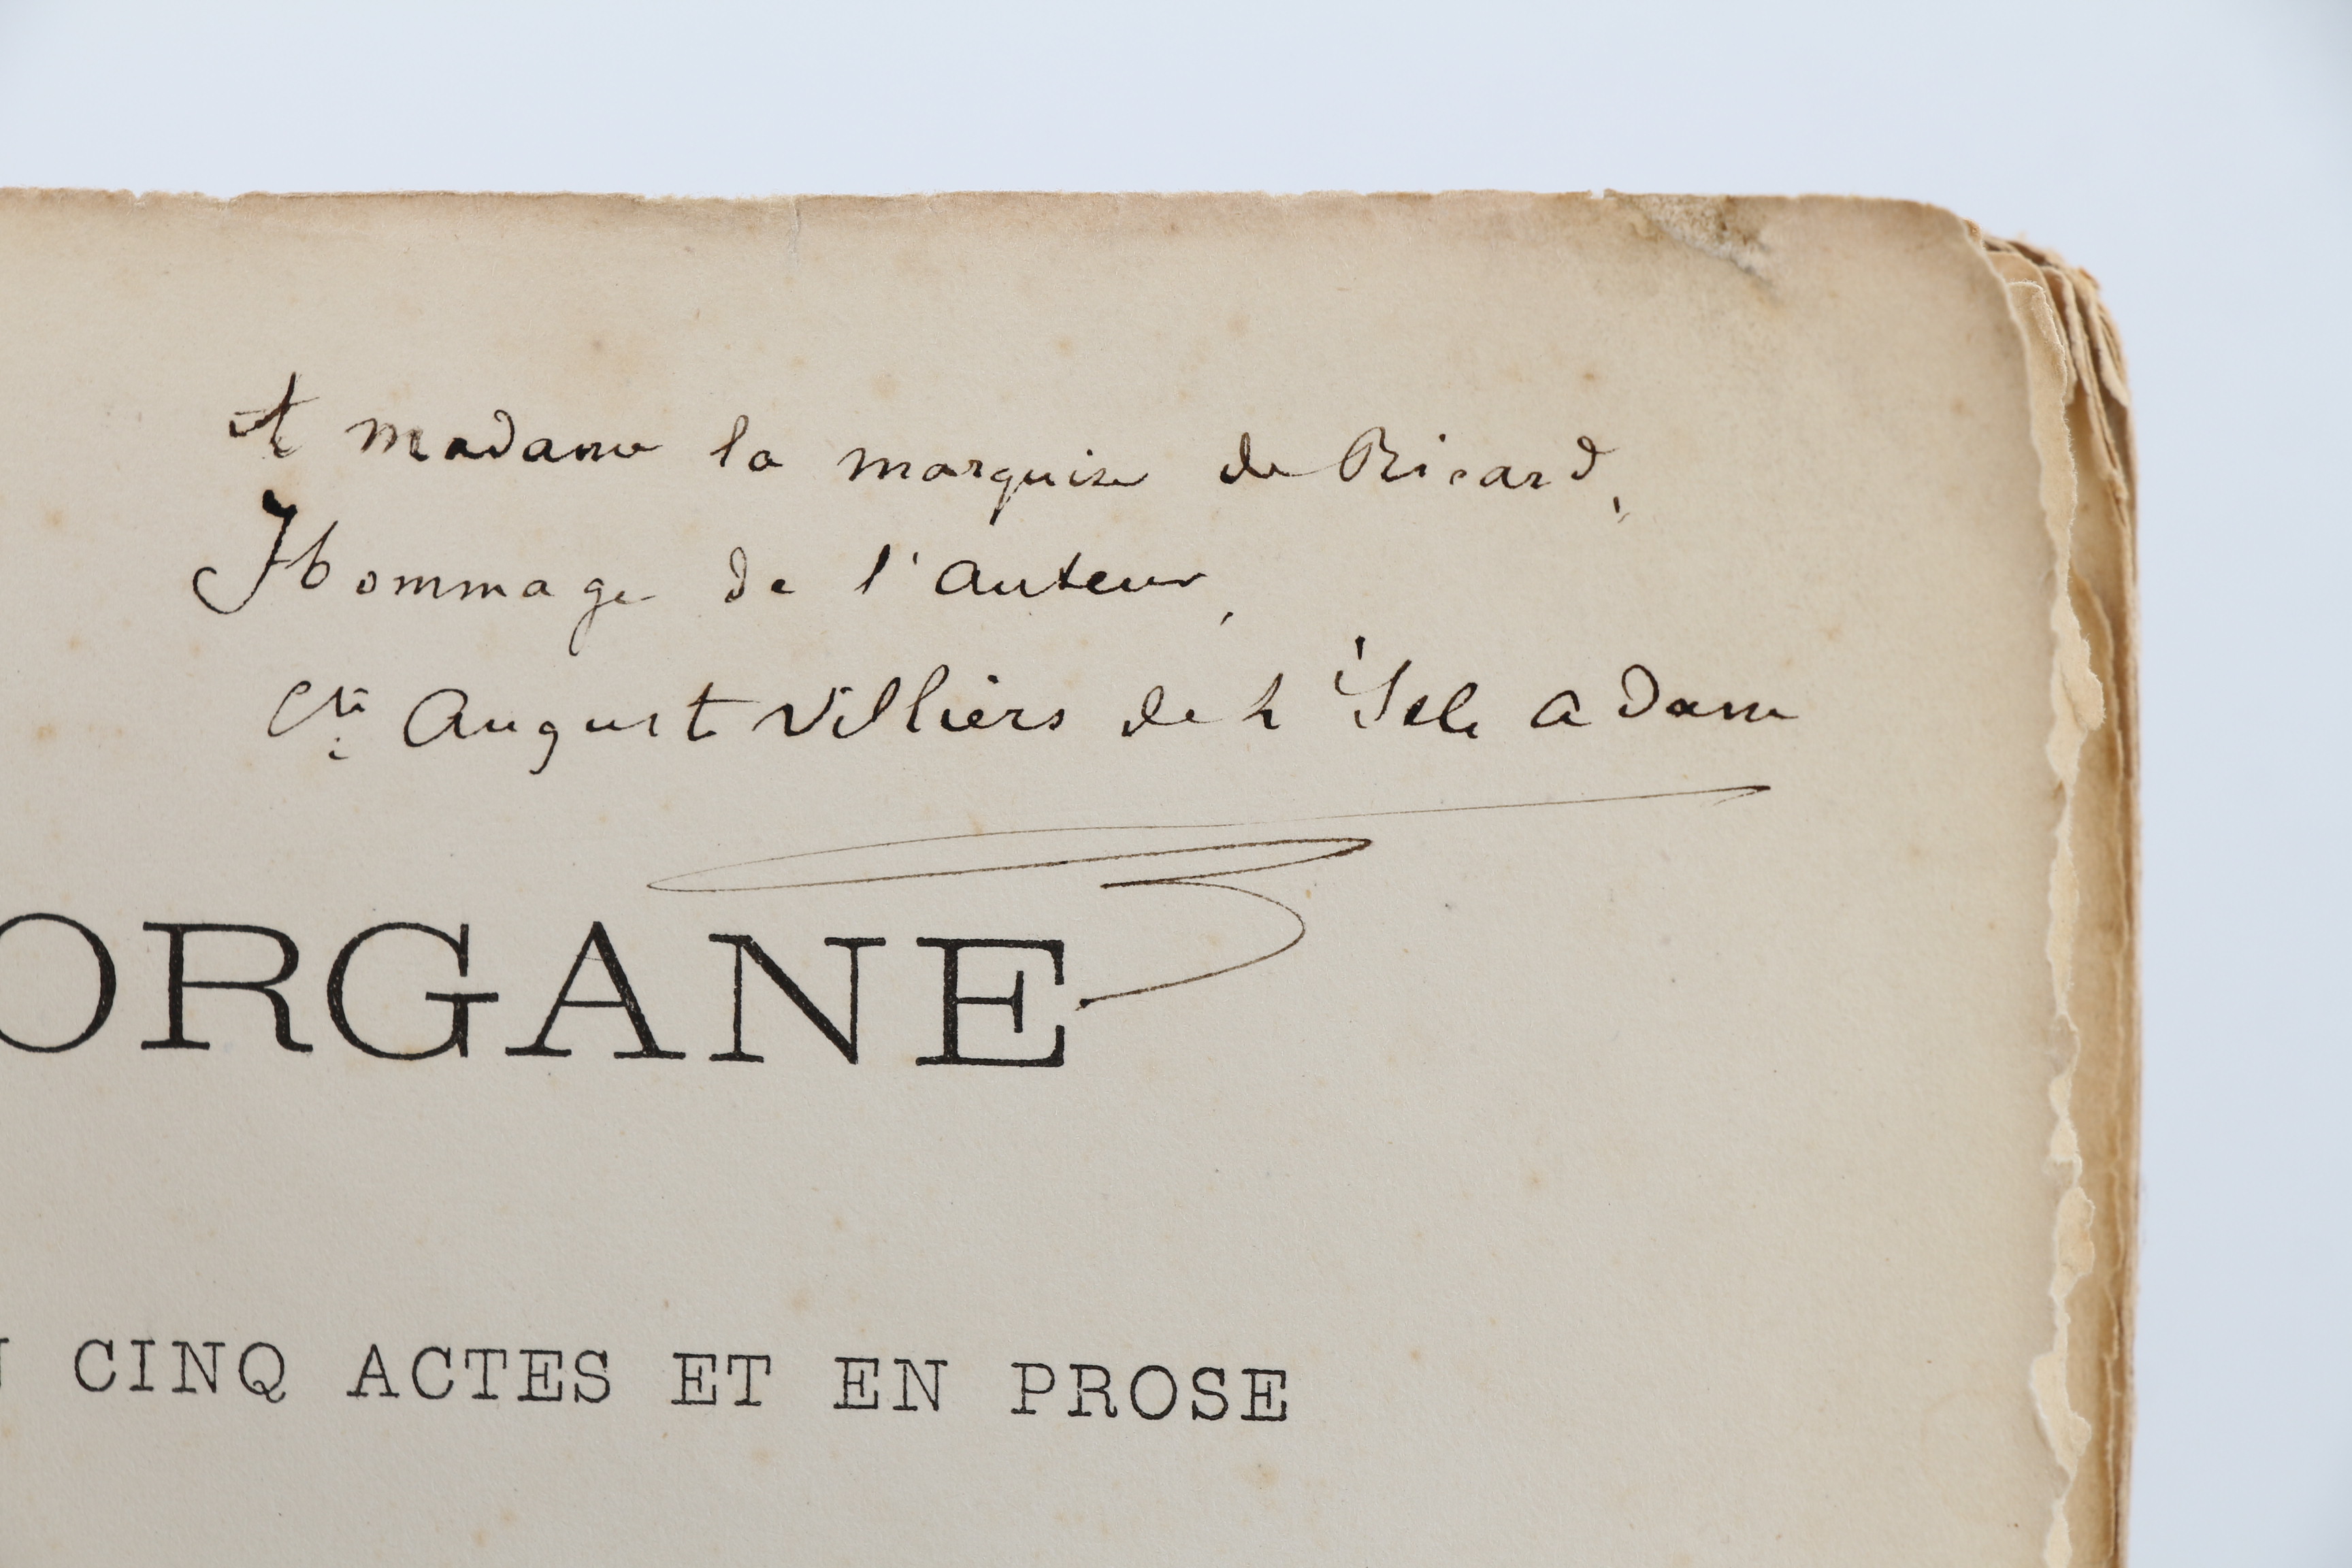 A madame la marquise de Ricard,
Hommage de l'auteur,
Cte Auguste Villiers de L'Isle Adam
ORGANE
CINQ ACTES ET EN PROSE